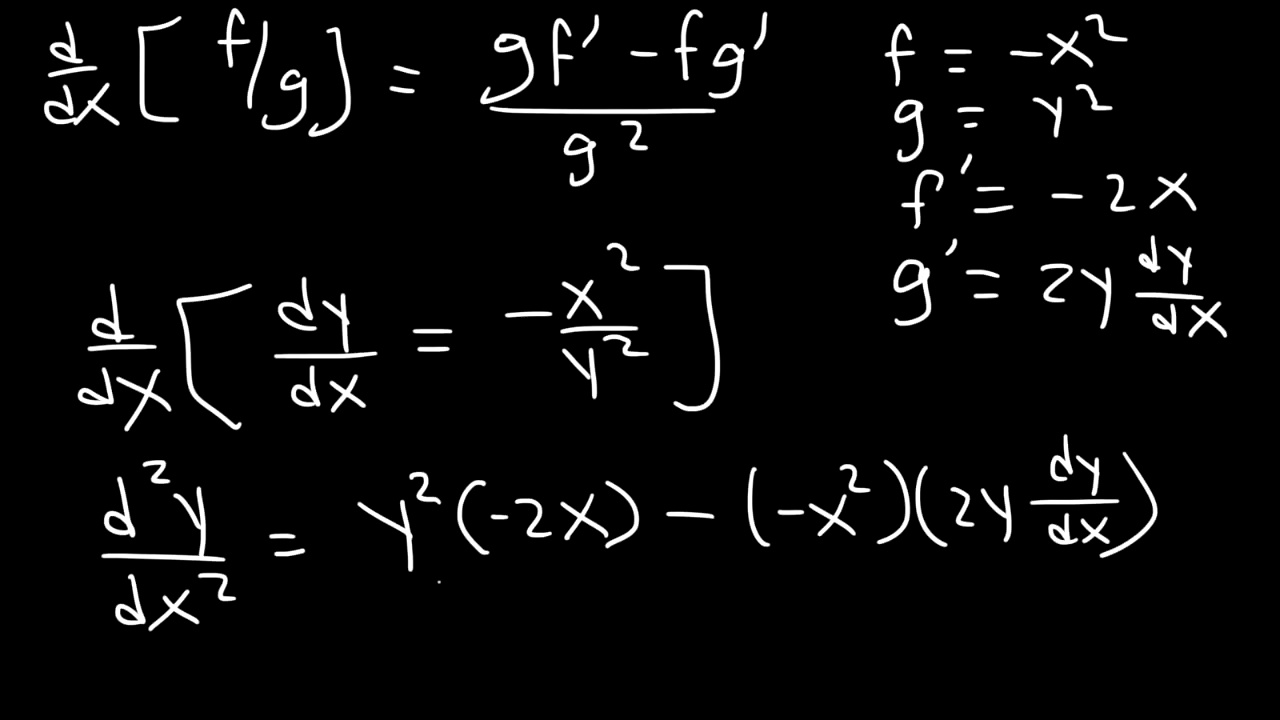 d/dx [ f/g ] = (gf' - fg') / g²
f = -x²
g = y²
f' = -2x
g' = 2y dy/dx
d/dx [ dy/dx = -x²/y² ]
d²y/dx² = y²(-2x) - (-x²)(2y dy/dx)